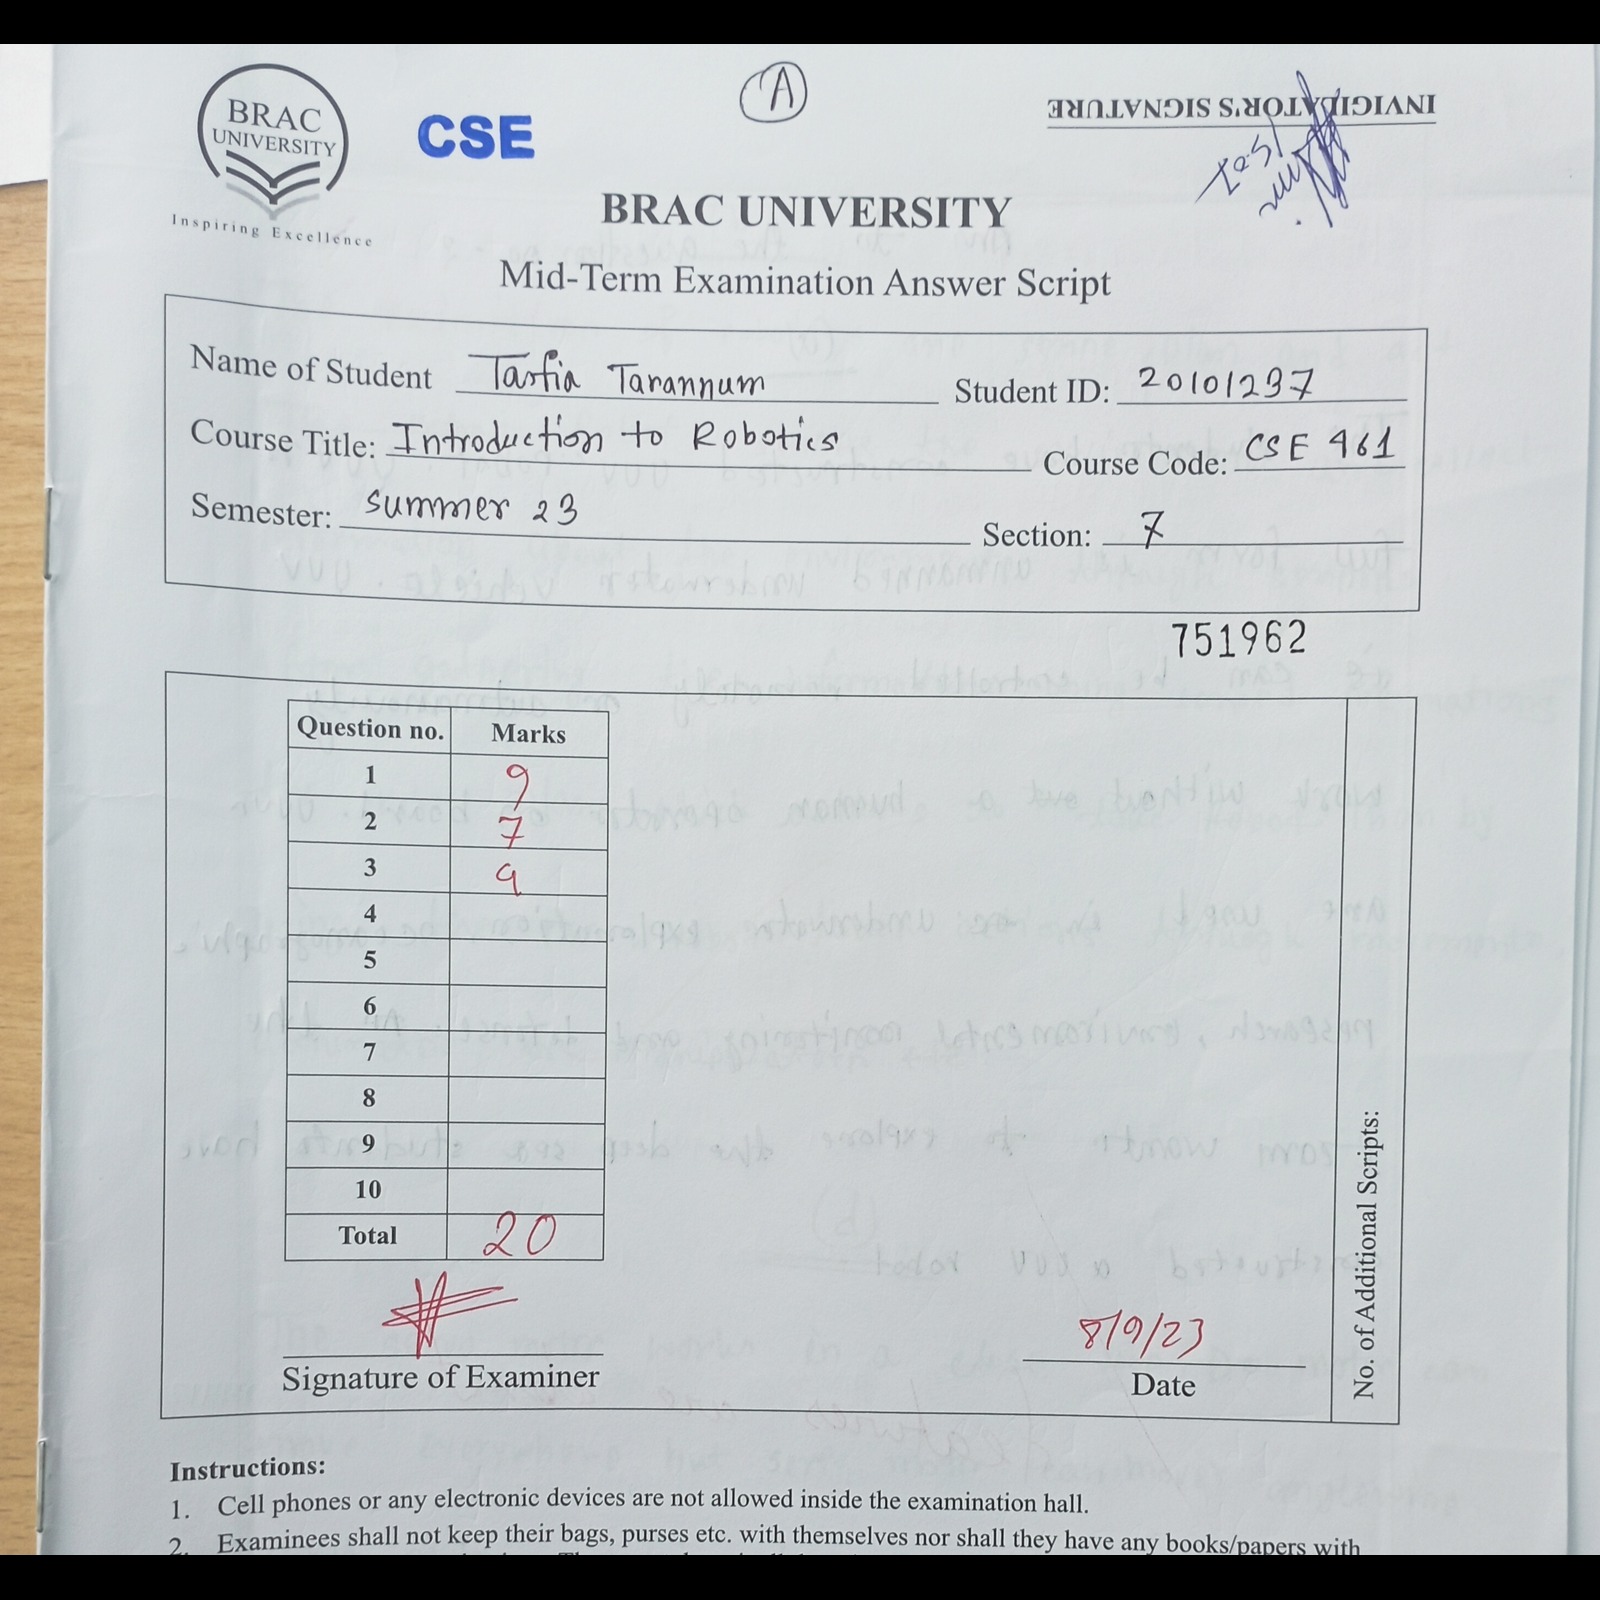 BRAC
UNIVERSITY
Inspiring Excellence
CSE
A
INVIGILATOR'S SIGNATURE
BRAC UNIVERSITY
Mid-Term Examination Answer Script
Name of Student Tasfia Tarannum Student ID: 20101297
Course Title: Introduction to Robotics Course Code: CSE 461
Semester: Summer 23 Section: 7
751962
Question no. Marks
1 9
2 7
3 9
4
5
6
7
8
9
10
Total 20
Signature of Examiner
8/9/23
Date
No. of Additional Scripts:
Instructions:
1. Cell phones or any electronic devices are not allowed inside the examination hall.
2. Examinees shall not keep their bags, purses etc. with themselves nor shall they have any books/papers with